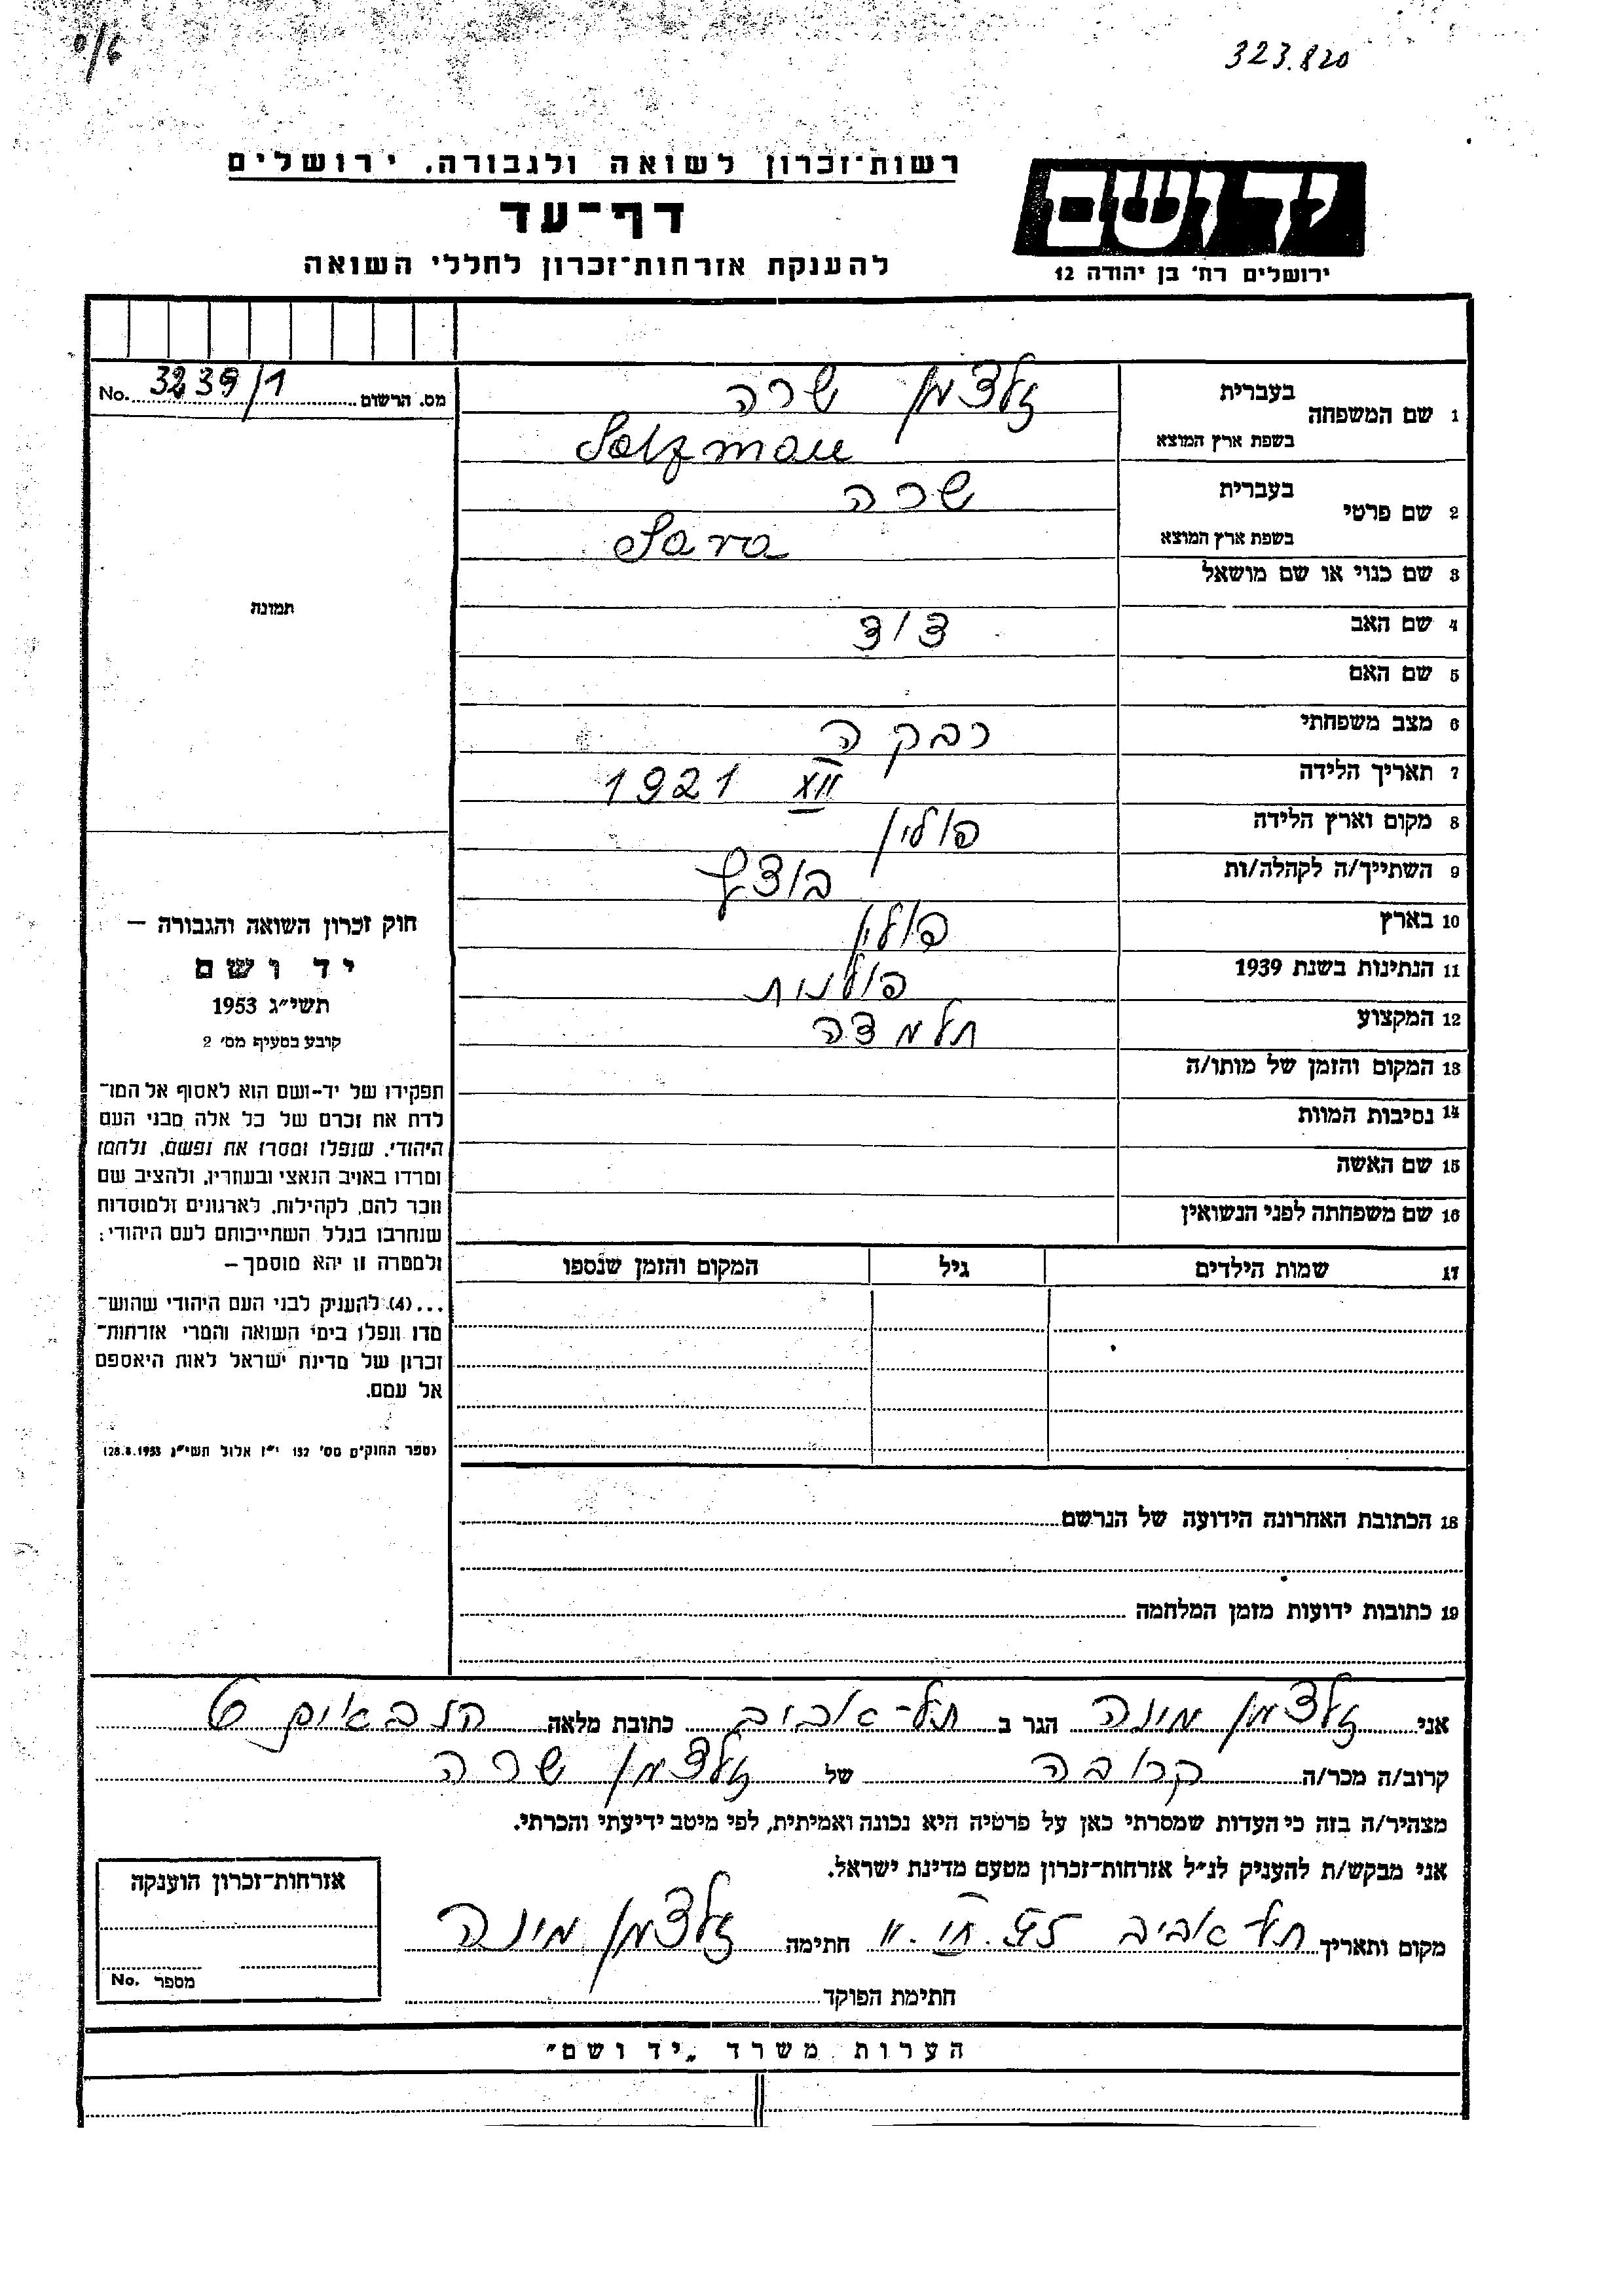 323.820
רשות־זכרון לשואה ולגבורה, ירושלים
דף־עד
להענקת אזרחות־זכרון לחללי השואה
יד ושם
ירושלים רח׳ בן יהודה 12
מס. הרשום 3239/1 No.
1 שם המשפחה בעברית זלצמן שרה
בשפת ארץ המוצא Salzman
2 שם פרטי בעברית שרה
בשפת ארץ המוצא Sara
3 שם כנוי או שם מושאל
4 שם האב
5 שם האם
6 מצב משפחתי רבקה
7 תאריך הלידה XII 1921
8 מקום וארץ הלידה פולין
9 השתייך/ה לקהלה/ות
10 בארץ פולין
11 הנתינות בשנת 1939 פולנית
12 המקצוע תלמדה
13 המקום והזמן של מותו/ה
14 נסיבות המוות
15 שם האשה
16 שם משפחתה לפני הנשואין
17 שמות הילדים גיל המקום והזמן שנספו
18 הכתובת האחרונה הידועה של הנרשם
19 כתובות ידועות מזמן המלחמה
תמונה
חוק זכרון השואה והגבורה —
יד ושם
תשי״ג 1953
קובע בסעיף מס׳ 2
תפקידו של יד-ושם הוא לאסוף אל המו־
לדת את זכרם של כל אלה מבני העם
היהודי, שנפלו ומסרו את נפשם, נלחמו
ומרדו באויב הנאצי ובעוזריו, ולהציב שם
וזכר להם, לקהילות, לארגונים ולמוסדות
שנחרבו בגלל השתייכותם לעם היהודי;
ולמטרה זו יהא מוסמך —
...(4) להעניק לבני העם היהודי שהוש־
מדו ונפלו בימי השואה והמרי אזרחות־
זכרון של מדינת ישראל לאות היאספם
אל עמם.
(ספר החוקים מס׳ 132 י״ז אלול תשי״ג 28.8.1953)
אני זלצמן מינה הגר ב תל-אביב כתובת מלאה הנבאים 6
קרוב/ה מכר/ה קרובה של זלצמן שרה
מצהיר/ה בזה כי העדות שמסרתי כאן על פרטיה היא נכונה ואמיתית, לפי מיטב ידיעתי והכרתי.
אני מבקש/ת להעניק לנ״ל אזרחות־זכרון מטעם מדינת ישראל.
מקום ותאריך תל אביב חתימה זלצמן מינה
חתימת הפוקד
אזרחות־זכרון הוענקה
מספר No.
הערות משרד „יד ושם״